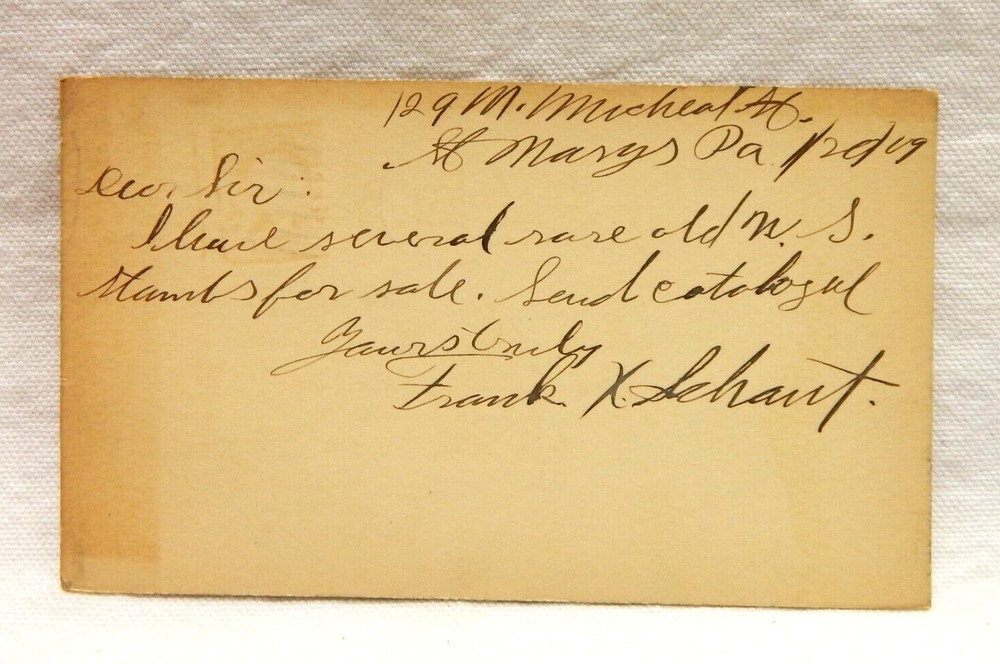 129 N. Micheal St.
St Marys Pa 1/20/19
Dear Sir:
I have several rare old U. S.
stambs for sale. Send catalogue
Yours truly
Frank X. Schaut.